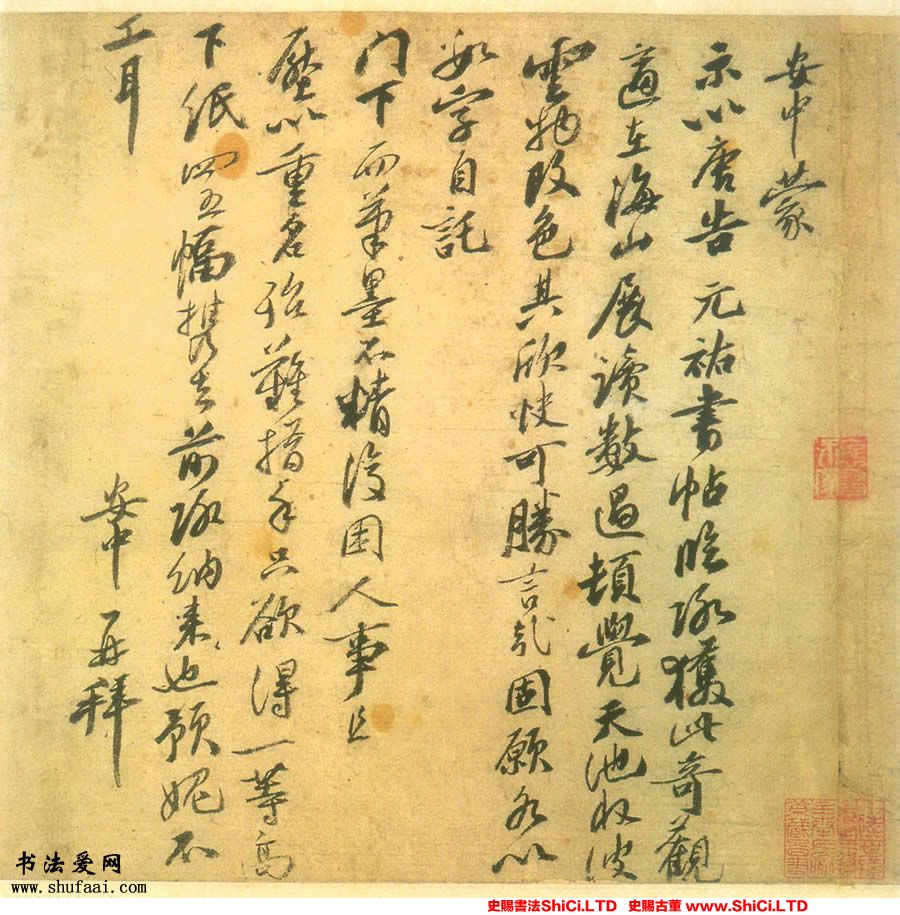 安中蒙
示以唐告元祐書帖臨路獲此奇觀
適在海山展讀數過頓覺天池收波
雲物改色其欣快可勝言哉固願各以
數字自託
门下而筆墨不精復困人事且
壓以重名殆難措手只欲得一等高
下紙四五幅携去前路納来也預媿不
工耳
安中再拜
书法爱网
www.shufaai.com
史賜書法ShiCi.LTD 史賜古董 www.ShiCi.LTD